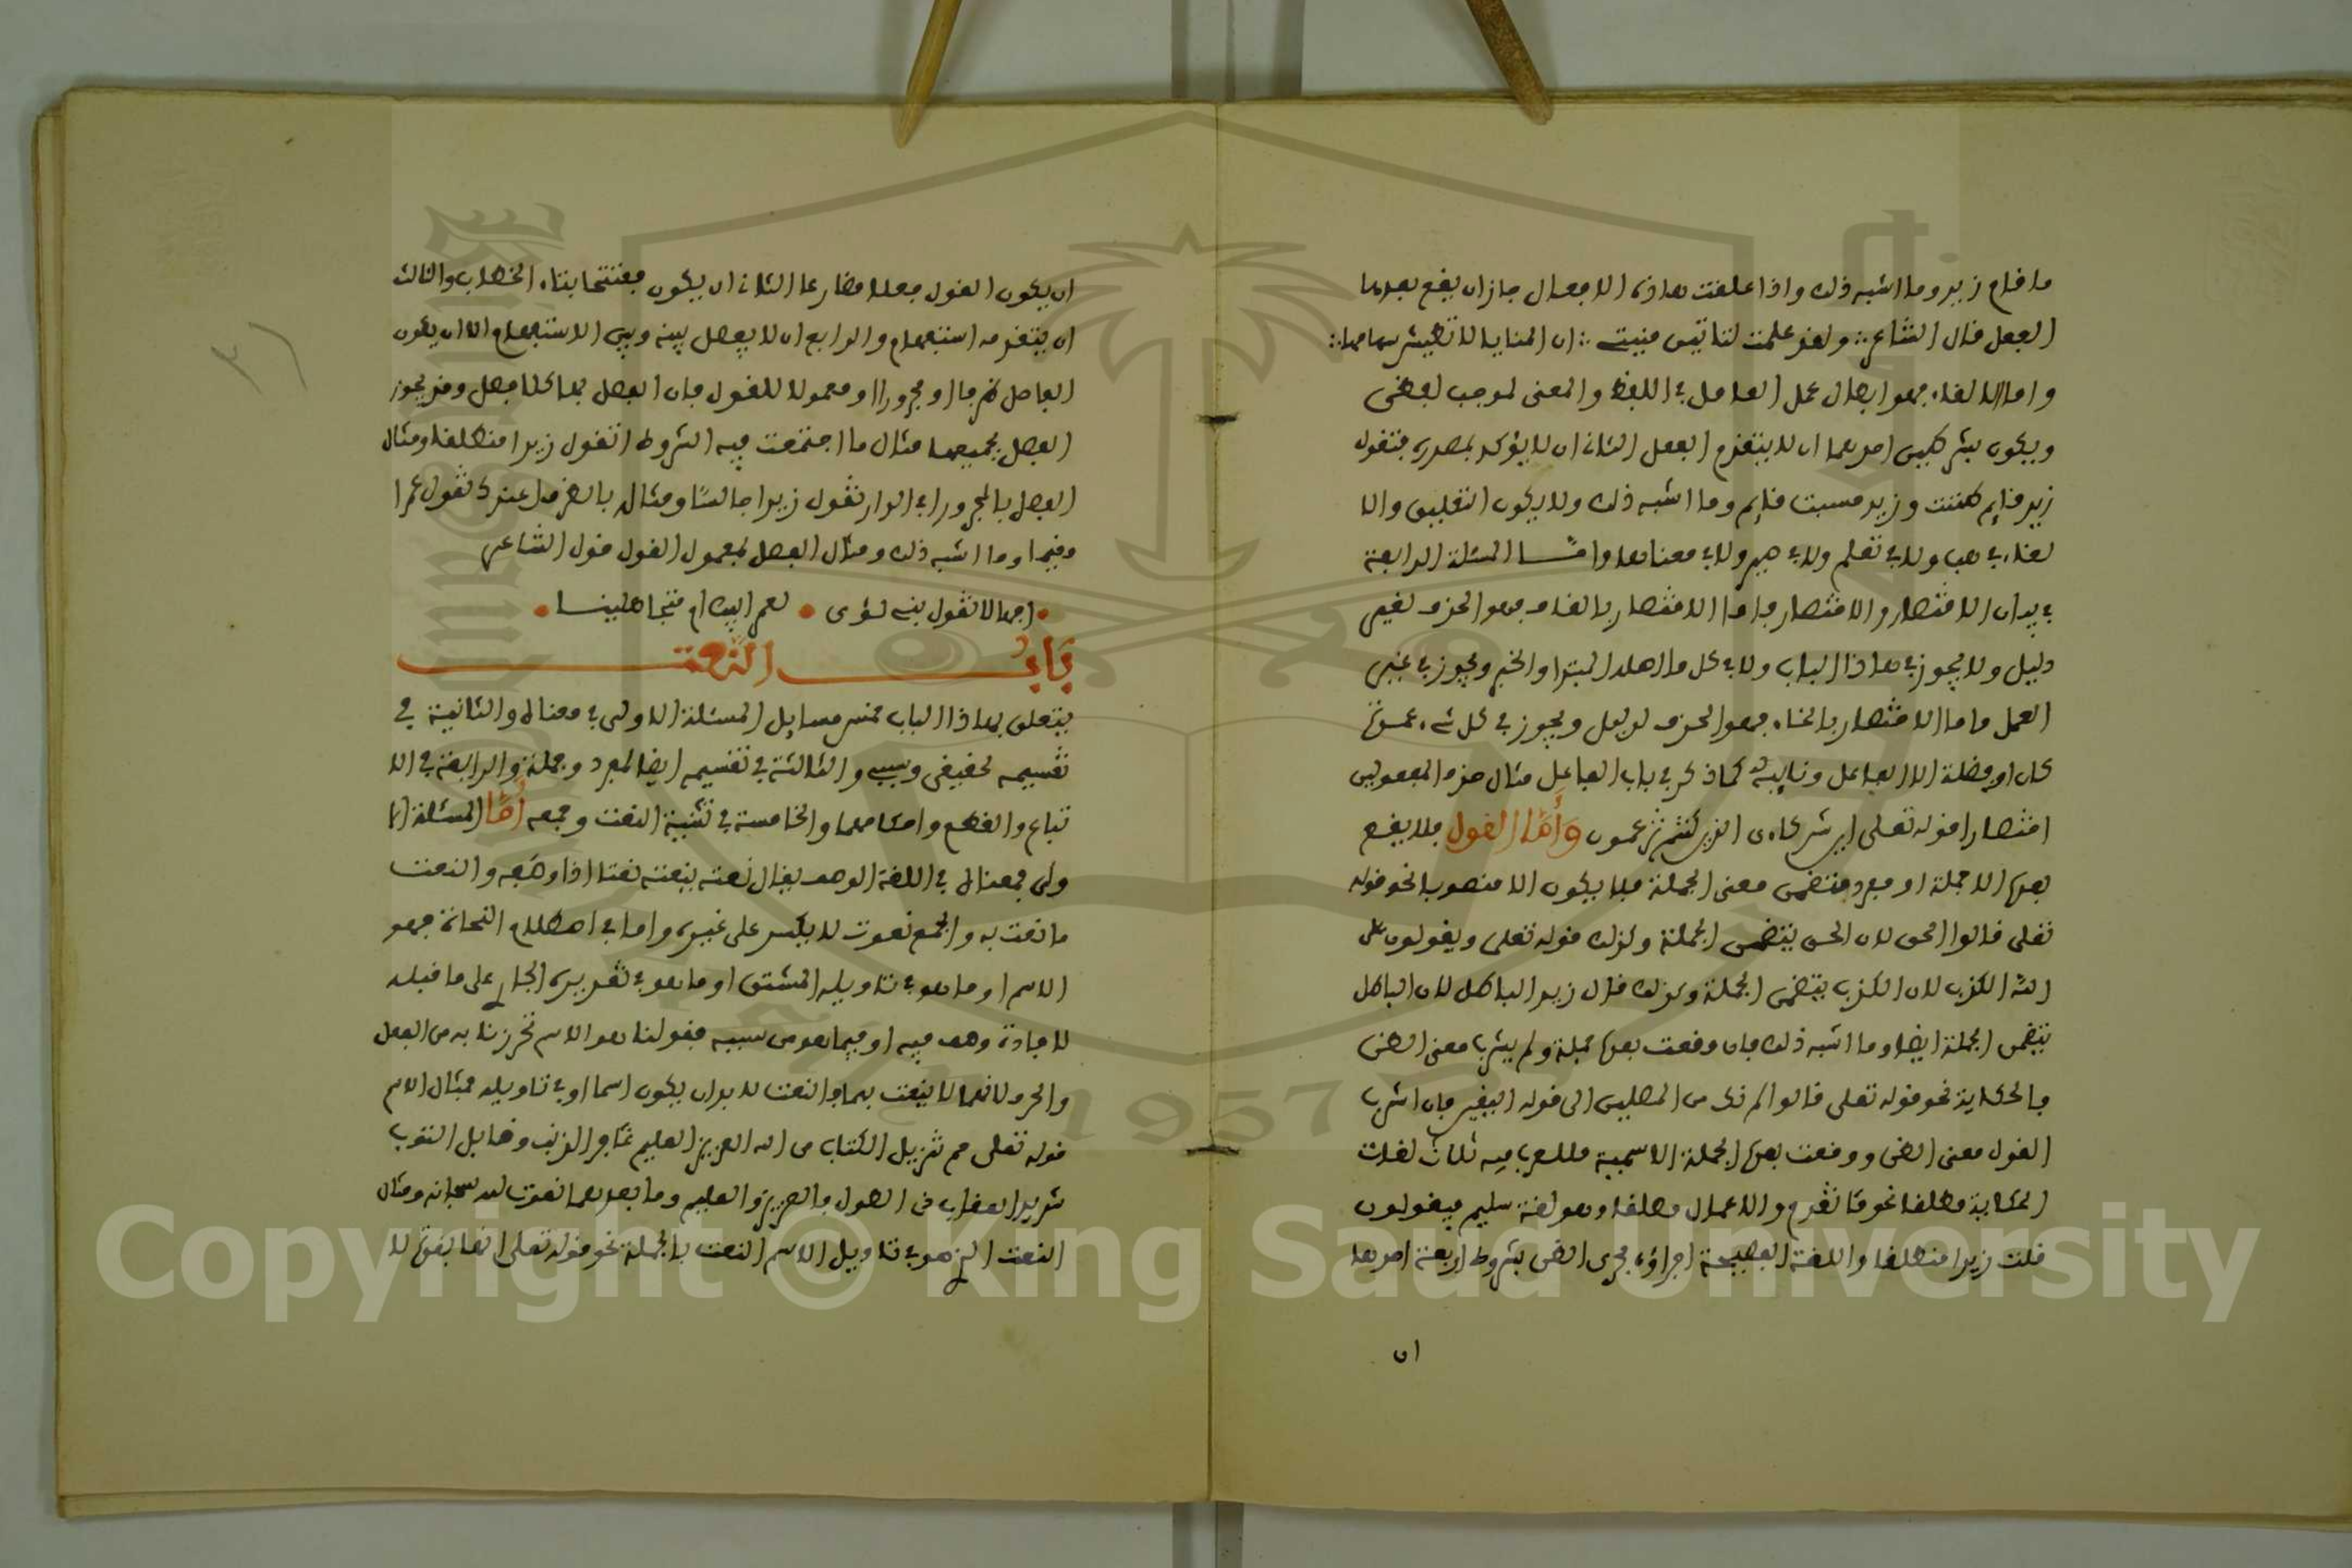 ما قام زيد وما اشبه ذلك واذا علقت هاذه الافعال جاز ان يقع بعدها
الفعل قال الشاعر ولقد علمت لتاتين منيتي ان المنايا لا تطيش سهامها
واما الالغاء فهو ابطال عمل العامل في اللفظ والمعنى لموجب لفظي
ويكون بشرطين احدهما ان لا يتقدم الفعل الثاني ان لا يؤكد بمصدره فتقول
زيد قايم ظننت وزيد حسبت قايم وما اشبه ذلك ولا يكون التعليق والا
لغاء في هب ولا في تعلم ولا في صير ولا في معناها واما المسئلة الرابعة
في بيان الاقتصار والاختصار فاما الاقتصار بالقاف فهو الحذف لغير
دليل ولا يجوز في هاذا الباب ولا في كل ما اصله المبتدا والخبر ويجوز في غير
العمل واما الاختصار بالخاء فهو الحذف لدليل ويجوز في كل شيء عمدة
كان او فضلة الا الفاعل ونايبه كما ذكر في باب الفاعل مثال حذف المفعولين
اختصارا قوله تعلى اين شركاءي الذين كنتم تزعمون وأما القول فلا يقع
بعده الا جملة او مفرد متضمن معنى الجملة فلا يكون الا منصوبا نحو قوله
تعلى قالوا الحق لان الحق يتضمن الجملة وكذلك قوله تعلى ويقولون على
الله الكذب لان الكذب يتضمن الجملة وكذلك قال زيد الباطل لان الباطل
يتضمن الجملة ايضا وما اشبه ذلك فان وقعت بعده جملة ولم يشرب معنى الظن
فالحكاية نحو قوله تعلى قالوا لم نك من المصلين الى قوله اليقين فان اشرب
القول معنى الظن ووقعت بعده الجملة الاسمية فللعرب فيه ثلاث لغات
الحكاية مطلقا نحو ما تقدم والاعمال مطلقا وهو لغة سليم فيقولون
قلت زيدا منطلقا واللغة الفصيحة اجراؤه مجرى الظن بشروط اربعة احدها
ان
ان يكون القول فعلا مضارعا الثاني ان يكون مفتتحا بتاء الخطاب والثالث
ان يتقدمه استفهام والرابع ان لا يفصل بينه وبين الاستفهام الا ان يكون
الفاصل ظرفا او مجرورا او معمولا للقول فان الفصل بها كلا فصل وقد يجوز
الفصل بجميعها مثال ما اجتمعت فيه الشروط اتقول زيدا منطلقا ومثال
الفصل بالمجرور افي الدار تقول زيدا جالسا ومثاله بالظرف اعندك تقول عمرا
مقيما وما اشبه ذلك ومثال الفصل بمعمول القول قول الشاعر
اجهالا تقول بني لؤي لعمر ابيك ام متجاهلينا
بَابُ النَّعت
يتعلق بهاذا الباب خمس مسايل المسئلة الاولى في معناه والثانية في
تقسيمه لحقيقي وسببي والثالثة في تقسيمه ايضا لمفرد وجملة والرابعة في الا
تباع والقطع واحكامهما والخامسة في تثنية النعت وجمعه أما المسئلة الا
ولى فمعناه في اللغة الوصف يقال نعته ينعته نعتا اذا وصفه والنعت
ما نعت به والجمع نعوت لا يكسر على غيره واما في اصطلاح النحاة فهو
الاسم او ما هو في تاويله المشتق او ما هو في تقديره الجار على ما قبله
لافادة وصف فيه او فيما هو من سببه فقولنا هو الاسم تحرزنا به من الفعل
والحرف لانهما لا ينعت بهما والنعت لا بد ان يكون اسما او في تاويله فمثال الاسم
قوله تعلى حم تنزيل الكتاب من الله العزيز العليم غافر الذنب وقابل التوب
شديد العقاب ذي الطول فالعزيز والعليم وما بعدهما نعوت لله سبحانه ومثال
النعت الذي هو في تاويل الاسم النعت بالجملة نحو قوله تعلى انها بقرة لا